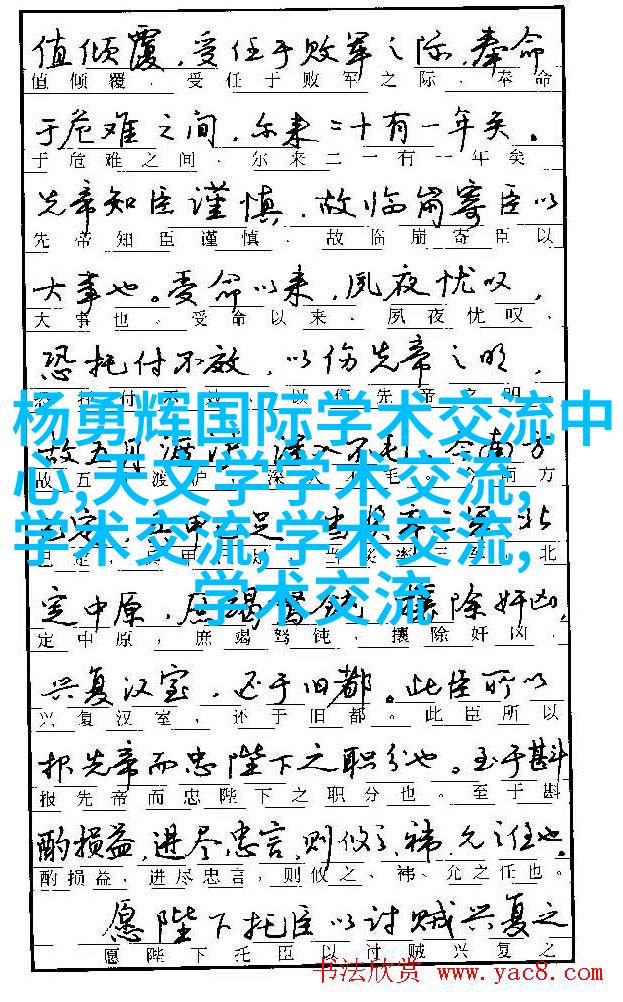 值倾覆，受任于败军之际，奉命
值倾覆，受任于败军之际，奉命
于危难之间，尔来二十有一年矣。
于危难之间，尔来二一有一年矣
先帝知臣谨慎，故临崩寄臣以
先帝知臣谨慎，故临崩寄臣以
大事也。受命以来，夙夜忧叹，
大事也。受命以来，夙夜忧叹，
恐托付不效，以伤先帝之明，
付 以 先帝之明，
杨勇辉国际学术交流中
故五月 深入不毛 今南方
故五 渡泸，深入不毛。 南方
心,天文学学术交流,
足，当奖率三军，北
当 北
学术交流,学术交流,
学术交流
定中原，庶竭驽钝，攘除奸凶，
定中原，庶竭驽钝，攘除奸凶，
兴复汉室，还于旧都。此臣所以
兴复汉室，还于旧都。此臣所以
报先帝而忠陛下之职分也。至于斟
报先帝而忠陛下之职分也。至于斟
酌损益，进尽忠言，则攸之、祎、允之任也。
酌损益，进尽忠言，则攸之、祎、允之任也。
愿陛下托臣以讨贼兴复之
愿陛下托臣以讨贼兴复之
书法欣赏 www.yac8.com